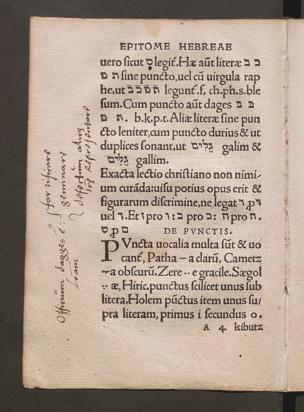 EPITOME HEBREAE
uero sicut ס legit̃. Hæ aũt literæ ב כ
ם ת sine puncto, uel cũ uirgula rap
he, ut legunt̃. f. ch. ph. s. ble
sum. Cum puncto aũt dages ב כ
פ ת . b. k. p. t. Aliæ literæ sine pun
cto leniter, cum puncto durius & ut
duplices sonant, ut גַלִּים galim &
גַּלִּים gallim.
Exacta lectio christiano non nimi-
um curãda: uisu potius opus erit &
figurarum discrimine, ne legat ר, ד p
uel ד. Et pro כ ב pro ה: ח pro ת.
ס ם
DE PVNCTIS.
PVncta uocalia multa sũt & uo
canť, Patha — a clarũ, Cametz
a obscurũ. Zere ·· e gracile. Sægol
æ, Hiric, punctus scilicet unus sub
litera, Holem pũctus item unus su/
pra literam, primus i secundus o.
A 4 kibutz
Officium dagges e:
fortificare
geminare
desertum alias
l̃ram
representare